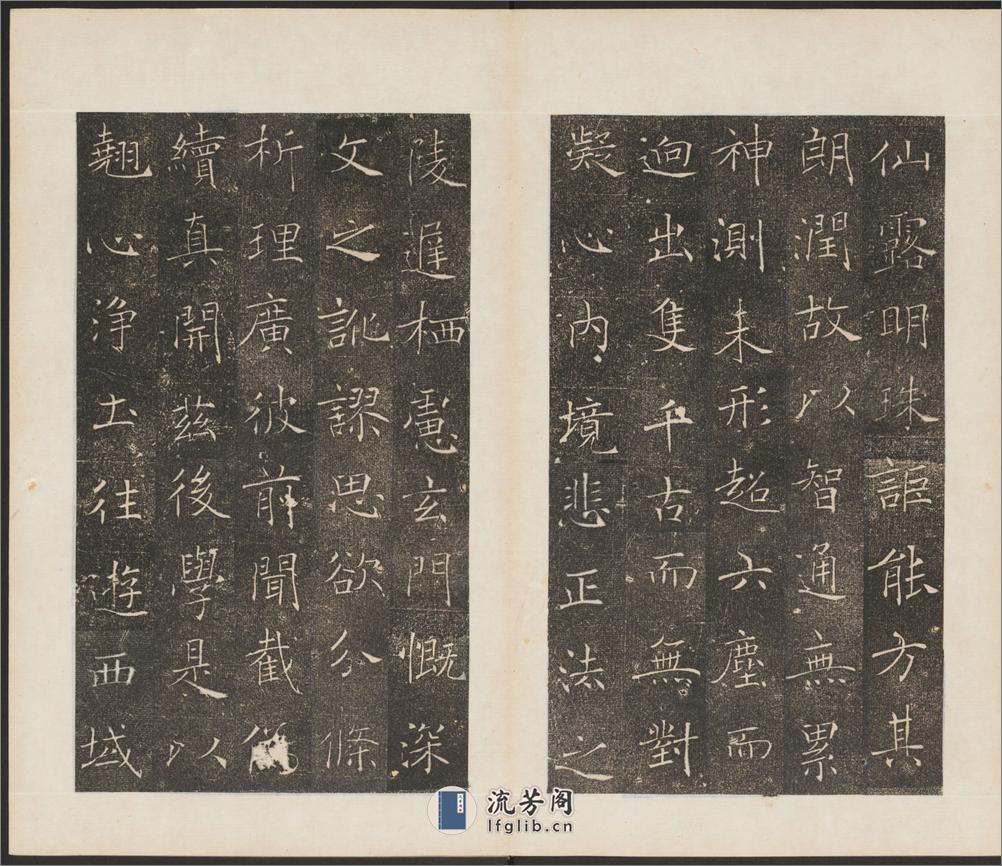 仙露明珠詎能方其
朗潤故以智通無累
神測未形超六塵而
迥出隻千古而無對
凝心內境悲正法之
陵遲栖慮玄門慨深
文之訛謬思欲分條
析理廣彼前聞截
續真開茲後學是以
翹心淨土往遊西域
流芳阁
lfglib.cn